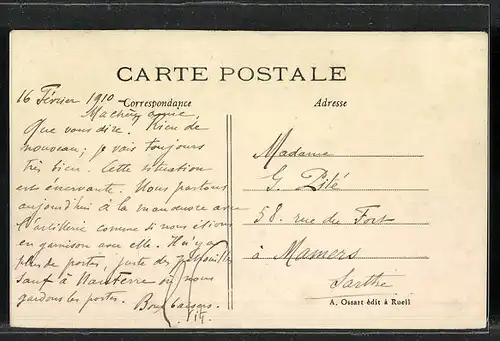 CARTE POSTALE
Correspondance
Adresse
16 Février 1910
Ma chère amie
Que vous dire. Rien de
nouveau; je vais toujours
très bien. Cette situation
est énervante. Nous partons
aujourd'hui à la manœuvre avec
l'artillerie comme si nous étions
en garnison avec elle. Il n'y a
plus de postes, juste des patrouilles
sauf à Nanterre où nous
gardons les postes. Bons baisers.
Madame
G. Pité
58. rue du Fort
à Mamers
Sarthe
A. Ossart édit à Rueil